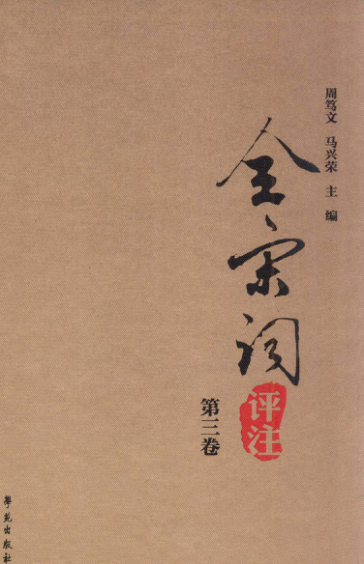 周笃文 马兴荣 主编
全宋词
评注
第三卷
学苑出版社